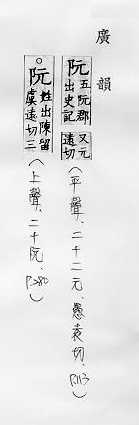 廣韻
阮 五阮郡出史記 又元遠切 (平聲、二十二元、愚袁切 P.113)
○阮 姓出陳留虞遠切三 (上聲、二十阮、P.280)